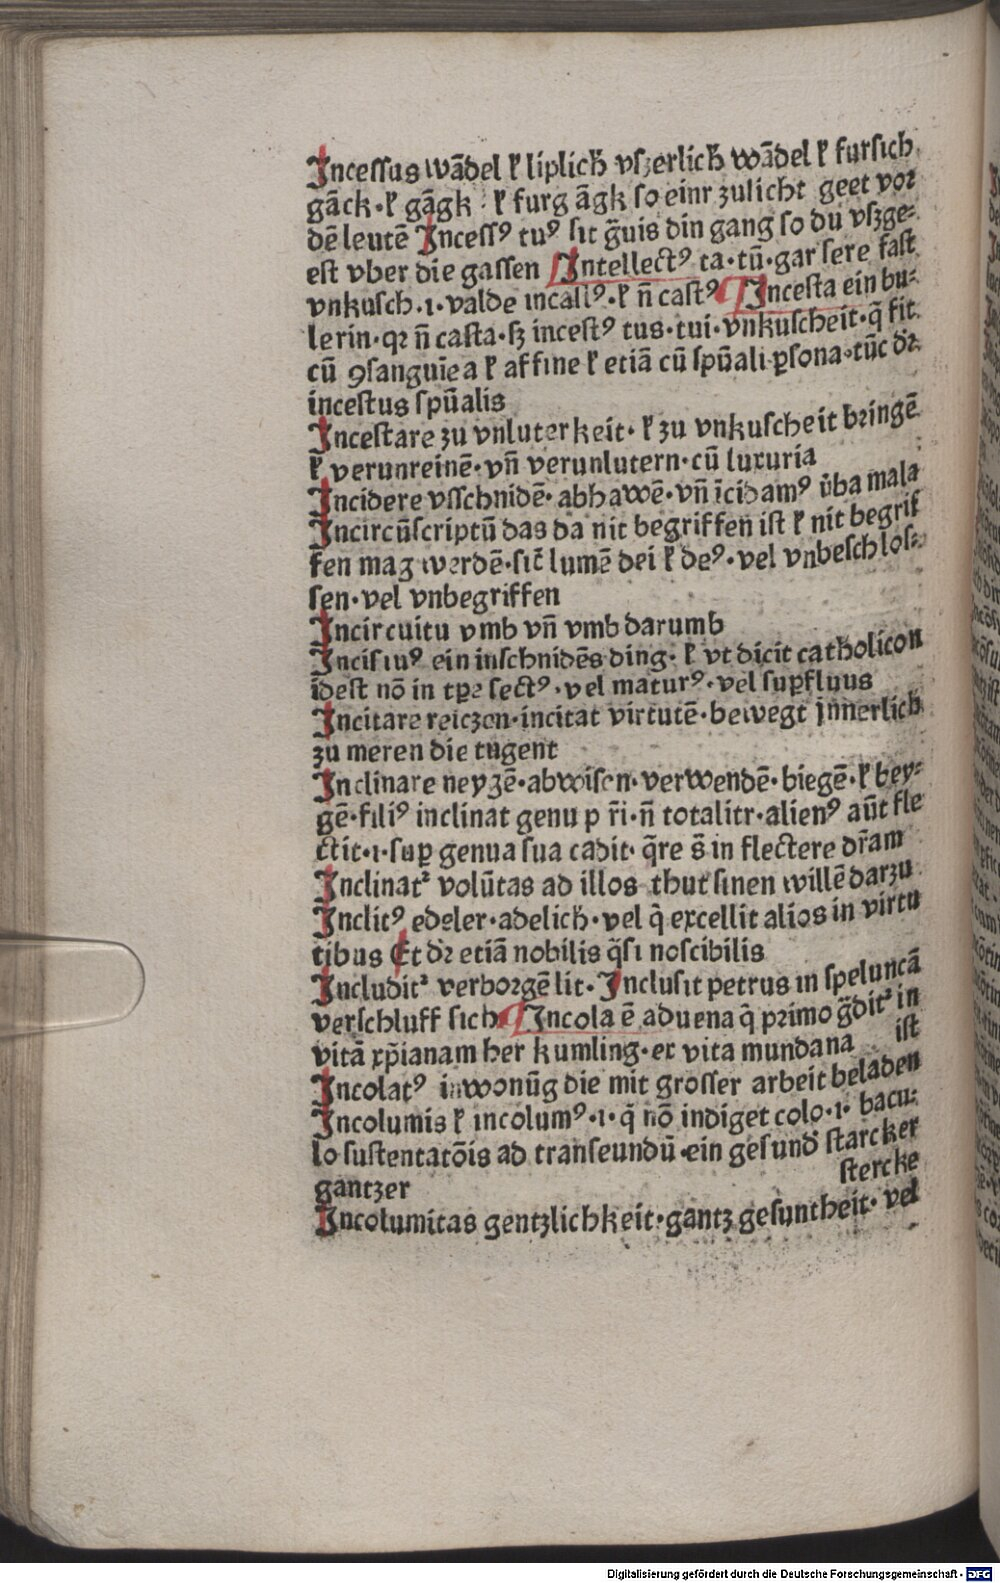 Incessus wādel ꝉ liplich vszerlich wādel ꝉ fursich
gāck · ꝉ gāgk : ꝉ furg āgk so einr zulicht geet vor
dē leutē Incessꝰ tuꝰ sit g̃uis din gang so du vszge⸗
est vber die gassen Intellectꝰ ta · tū · gar sere fast
vnkusch · ı · valde incastꝰ · ꝉ n̄ castꝰ ¶ Incesta ein bu⸗
lerin · qꝛ n̄ casta · sʒ incestꝰ tus · tui · vnkuscheit · q̄ fit
cū ꝯsanguīea ꝉ affine ꝉ etiā cū spūali ꝑsona · tūc dꝛ
incestus spūalis
Incestare zu vnluterkeit · ꝉ zu vnkuscheit bringē
ꝉ verunreinē · vn̄ verunlutern · cū luxuria
Incidere vsschnidē · abhawē · vn̄ īcidamꝰ v̄ba mala
Incircūscriptū das da nit begriffen ist ꝉ nit begrif
fen mag werdē · sic̄ lumē dei ꝉ deꝰ · vel vnbeschlos⸗
sen · vel vnbegriffen
Incircuitu vmb vn̄ vmb darumb
Incisiuꝰ ein inschnidēs ding · ꝉ vt dicit catholicon
idest nō in tꝑe sectꝰ · vel maturꝰ · vel suꝑfluus
Incitare reiczen · incitat virtutē · bewegt jnnerlich
zu meren die tugent
Inclinare neyzē · abwisen · verwendē · biegē · ꝉ bey⸗
gē · filiꝰ inclinat genu p r̄i · n̄ totalitr · alienꝰ aūt fle
ctit · ı · suꝑ genua sua cadit · q̄re s̄ in flectere dr̄am
Inclinatᷣ volūtas ad illos thut sinen willē darzu
Inclitꝰ edeler · adelich · vel q̄ excellit alios in virtu
tibus Et dꝛ etiā nobilis q̄si noscibilis
Includitᷣ verborgē lit · Inclusit petrus in speluncā
verschluff sich ¶ Incola ē aduena q̄ primo g̃ditᷣ in
vitā xp̄ianam her kumling · ex vita mundana
ist
Incolatꝰ inwonūg die mit grosser arbeit beladen
Incolumis ꝉ incolumꝰ · ı · q̄ nō indiget colo · ı · bacu⸗
lo sustentatōis ad transeundū · ein gesund starcker
gantzer
stercke
Incolumitas gentzlichkeit · gantz gesuntheit · vel
Digitalisierung gefördert durch die Deutsche Forschungsgemeinschaft - DFG